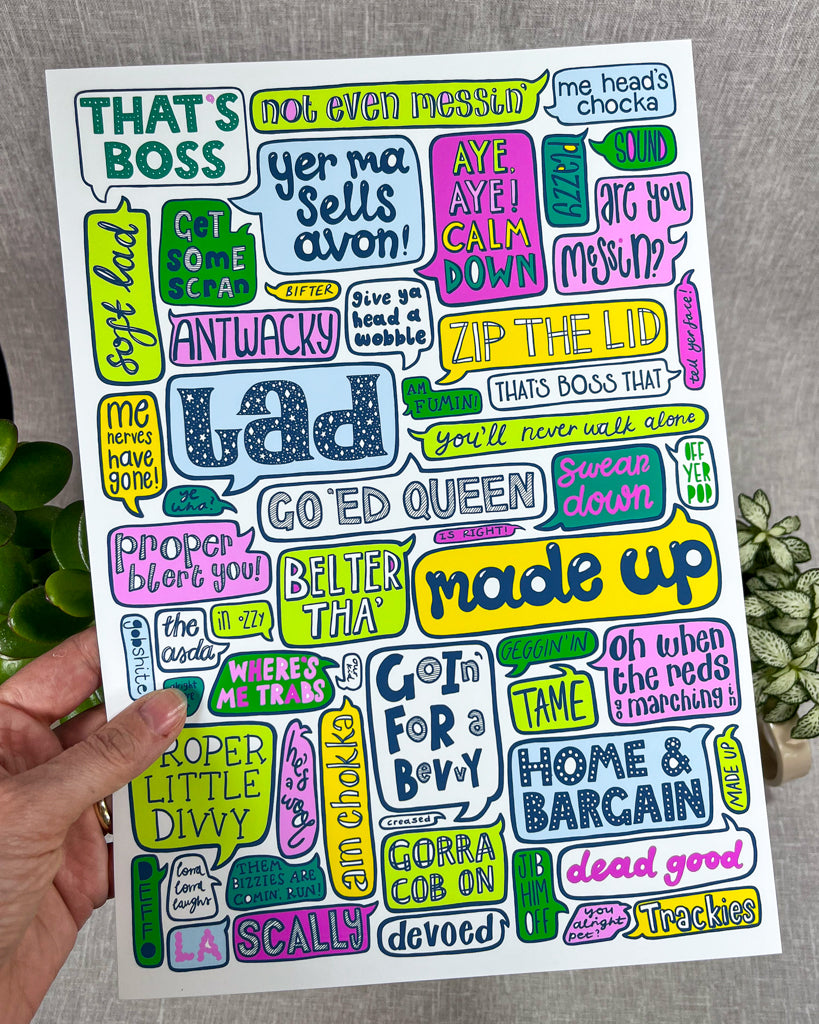 THAT'S
BOSS
not even messin'
me head's
chocka
yer ma
sells
avon!
AYE,
AYE!
CALM
DOWN
HAZZY
SOUND
are you
messin?
soft lad
GET
SOME
SCRAN
BIFTER
give ya
head a
wobble
ANTWACKY
ZIP THE LID
tell yer face!
THAT'S BOSS THAT
Lad
AM
FUMIN!
me
nerves
have
gone!
you'll never walk alone
ye
wha?
GO 'ED QUEEN
swear
down
OFF
YER
POD
IS RIGHT!
proper
blert you!
BELTER
THA'
made up
gobshite
the
asda
in ozzy
GEGGIN' IN
oh when
the reds
go marching in
WHERE'S
ME TRABS
GOIN'
FOR a
BEVVY
TAME
PROPER
LITTLE
DIVVY
he's a wool
am chokka
HOME &
BARGAIN
MADE UP
creased
GORRA
COB ON
dead good
DEFFO
lorra
lorra
laughs
THEM
BIZZIES ARE
COMIN, RUN!
JIB
HIM
OFF
LA
SCALLY
devoed
you
alright
pet?
Trackies